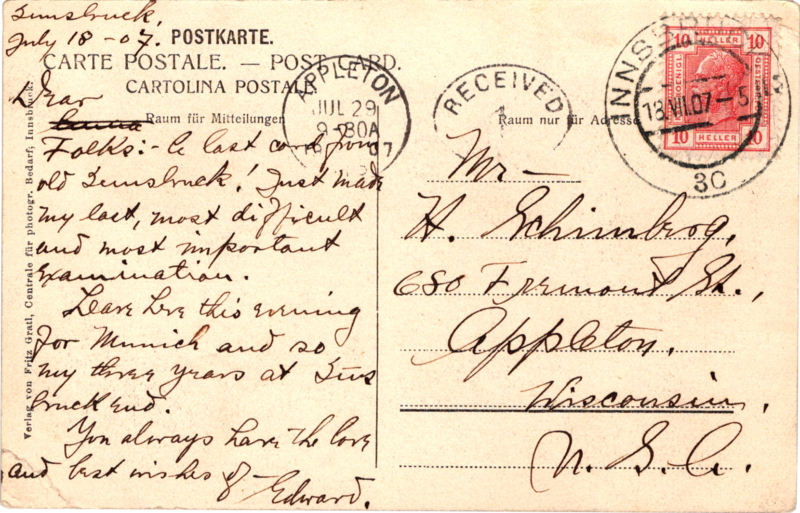 Innsbruck,
July 18-07.
POSTKARTE.
CARTE POSTALE. — POST CARD.
CARTOLINA POSTALE
Raum für Mitteilungen
Raum nur für Adresse
Dear
Folks:- A last card from
old Innsbruck! Just made
my last, most difficult
and most important
examination.
Leave here this evening
for Munich and so
my three years at Inns
bruck end.
You always have the love
and best wishes of
Edward.
Mr —
H. Schimberg,
680 Fremont St.,
Appleton,
Wisconsin,
U. S. A.
APPLETON
JUL 29
9-30A
07
RECEIVED
1
INNSBRUCK
18.VII.07-5
3C
10 HELLER 10
10 HELLER 10
Verlag von Fritz Gratl, Centrale für photogr. Bedarf, Innsbruck.